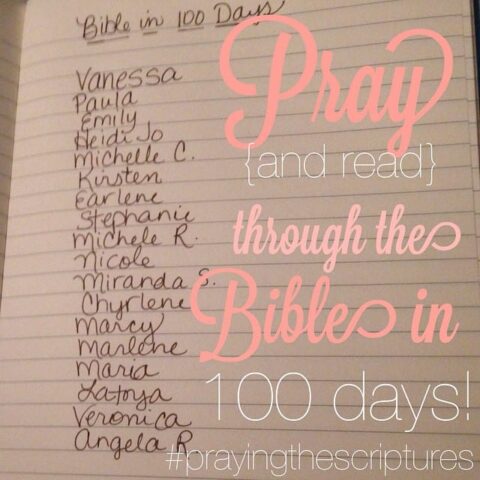 Bible in 100 Days
Vanessa
Paula
Emily
Heidi Jo
Michelle C.
Kirsten
Earlene
Stephanie
Michele R.
Nicole
Miranda S.
Chyrlene
Marcy
Marlene
Maria
Latoya
Veronica
Angela R
Pray
{and read}
through the
Bible in
100 days!
#prayingthescriptures